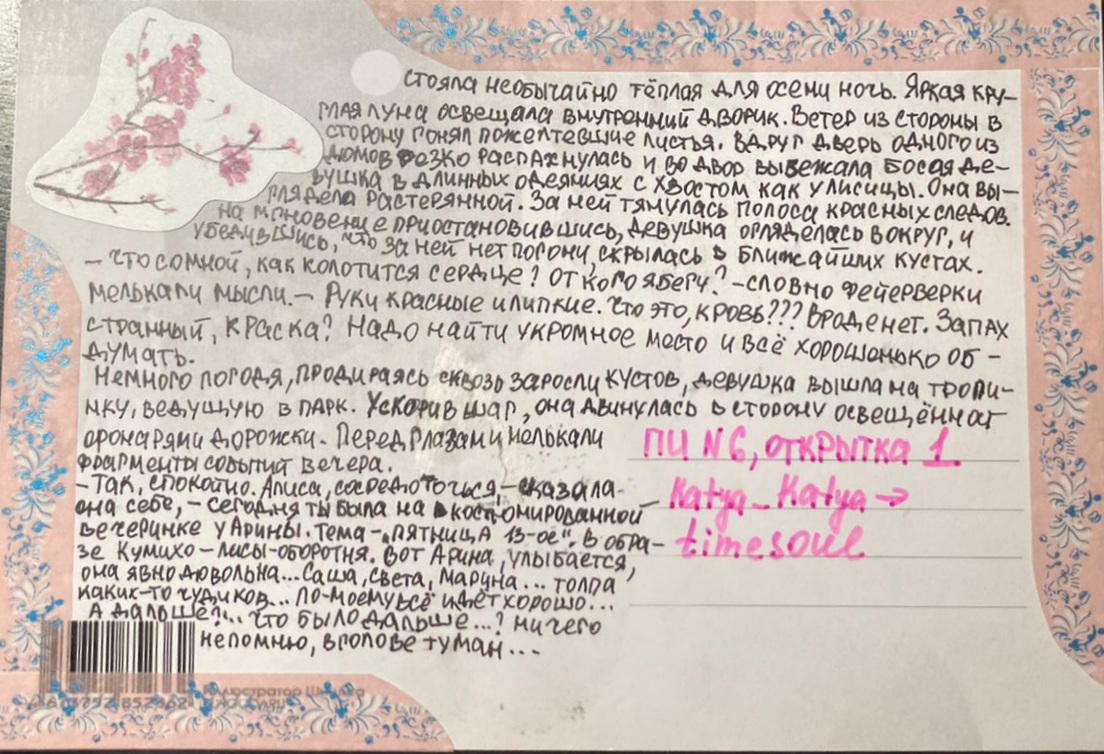 стояла необычайно тёплая для осени ночь. Яркая кру-
глая луна освещала внутренний дворик. Ветер из стороны в
сторону гонял пожелтевшие листья. Вдруг дверь одного из
домов резко распахнулась и во двор выбежала босая де-
вушка в длинных одеяниях с хвостом как у лисицы. Она вы-
глядела растерянной. За ней тянулась полоса красных следов.
на мгновение приостановившись, девушка огляделась вокруг, и
убедившись, что за ней нет погони, скрылась в ближайших кустах.
– что со мной, как колотится сердце? От кого я бегу? – словно фейерверки
мелькали мысли. – Руки красные и липкие. Что это, кровь??? Вроде нет. Запах
странный, краска? Надо найти укромное место и всё хорошенько об-
думать.
Немного погодя, продираясь сквозь заросли кустов, девушка вышла на тропи-
нку, ведущую в парк. Ускорив шаг, она двинулась в сторону освещённой
фонарями дорожки. Перед глазами мелькали
фрагменты событий вечера.
– Так, спокойно. Алиса, сосредоточься, – сказала
она себе, – сегодня ты была на костюмированной
вечеринке у Арины. Тема – „пятница 13-ое". В обра-
зе Кумихо – лисы-оборотня. Вот Арина, улыбается,
она явно довольна... Саша, Света, Марина... толпа
каких-то чудиков... по-моему всё идёт хорошо...
А дальше?... что было дальше...? ничего
не помню, в голове туман...
ПИ №6, открытка 1
Katya_Katya →
timesoul